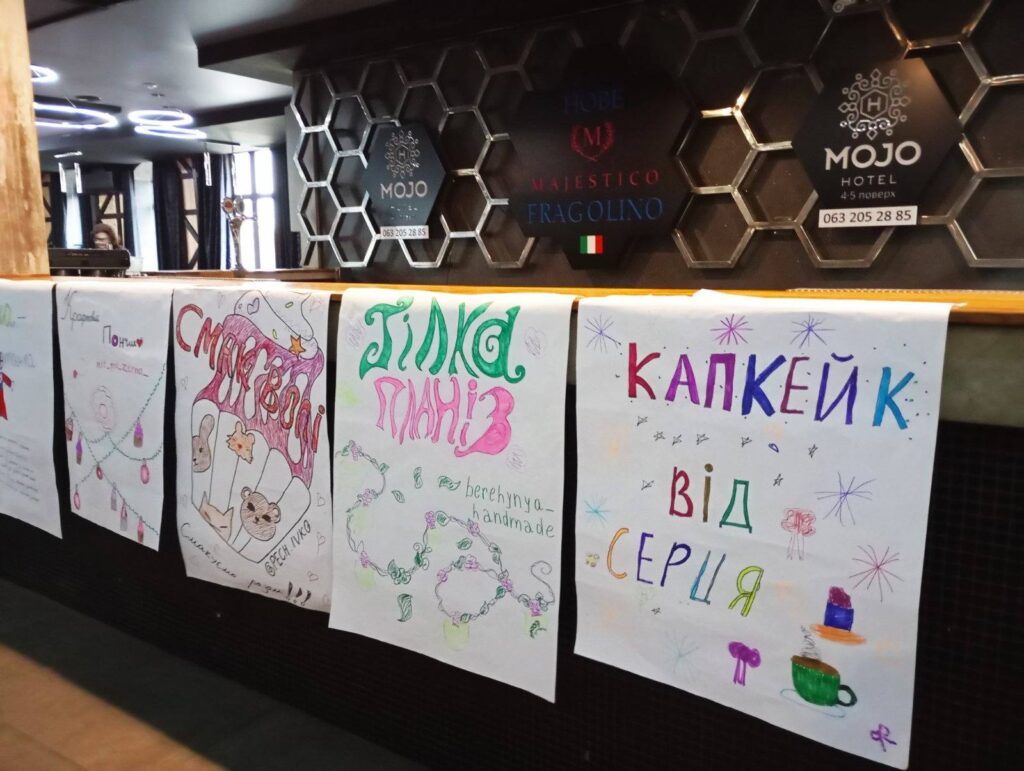 MOJO
HOTEL
063 205 28 85
НОВЕ
M
MAJESTICO
FRAGOLINO
H
MOJO
HOTEL
4-5 поверх
063 205 28 85
Пончик
СМАКОВОЛІ
@PECH_IVKO
Смакуємо разом!!!
ГІЛКА
ПЛАНІВ
berehynya_
handmade
КАПКЕЙК
ВІД
СЕРЦЯ